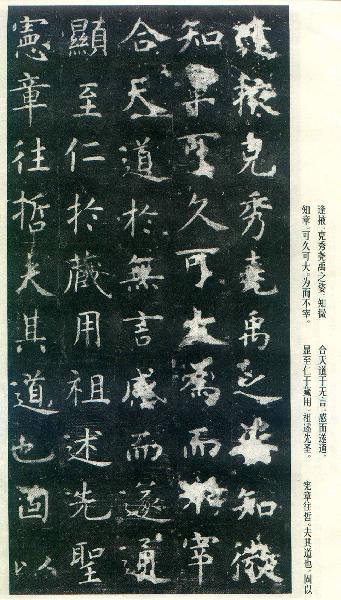 逢掖，克秀尧禹之姿。知微
知章，可久可大。为而不宰。
合天道于无言，感而遂通，
显至仁于藏用。祖述先圣。
宪章往哲。夫其道也，固以
逢掖克秀堯禹之姿知微
知章可久可大為而不宰
合天道於無言感而遂通
顯至仁於藏用祖述先聖
憲章往哲夫其道也固以